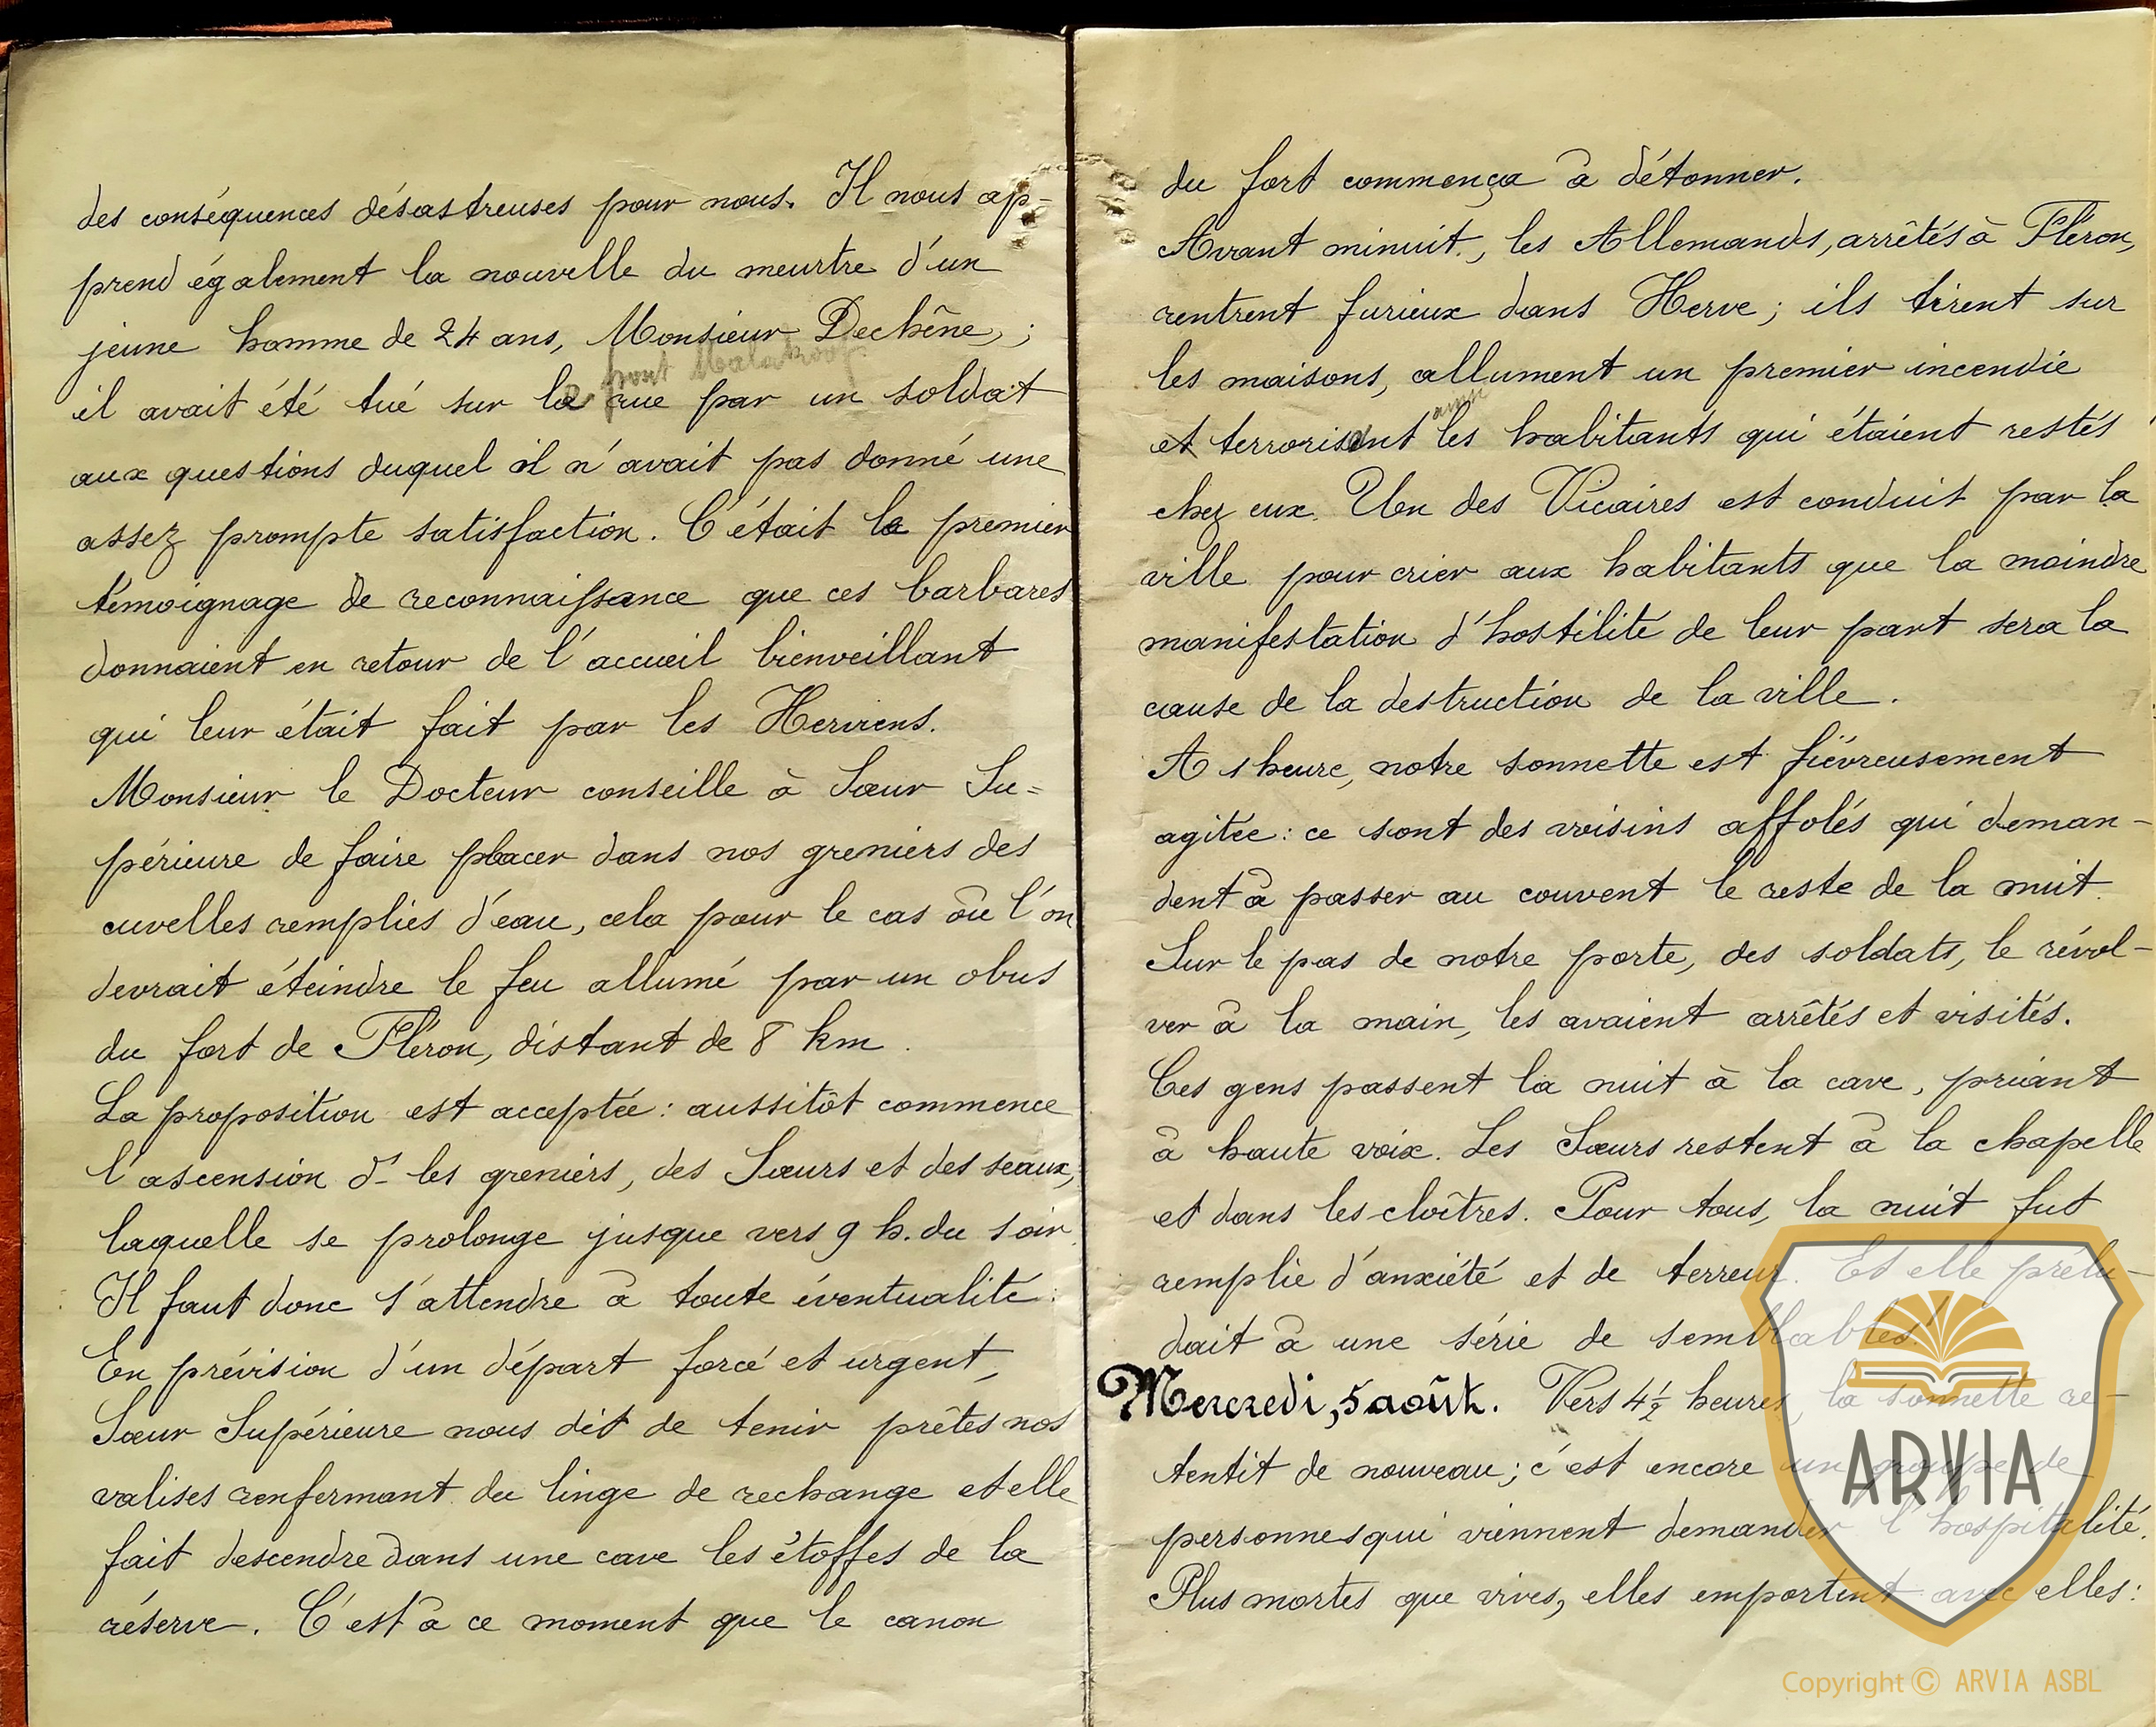 des conséquences désastreuses pour nous. Il nous ap-
prend également la nouvelle du meurtre d'un
jeune homme de 24 ans, Monsieur Dechêne, ;
pont Malakoff
il avait été tué sur la rue par un soldat
aux questions duquel il n'avait pas donné une
assez prompte satisfaction. C'était le premier
témoignage de reconnaissance que ces barbares
donnaient en retour de l'accueil bienveillant
qui leur était fait par les Herviens.
Monsieur le Docteur conseille à Sœur Su=
périeure de faire placer dans nos greniers des
cuvelles remplies d'eau, cela pour le cas où l'on
devrait éteindre le feu allumé par un obus
du fort de Fléron, distant de 8 km.
La proposition est acceptée : aussitôt commence
l'ascension ds les greniers, des Sœurs et des seaux,
laquelle se prolonge jusque vers 9 h. du soir.
Il faut donc s'attendre à toute éventualité.
En prévision d'un départ forcé et urgent,
Sœur Supérieure nous dit de tenir prêtes nos
valises renfermant du linge de rechange et elle
fait descendre dans une cave les étoffes de la
réserve. C'est à ce moment que le canon
du fort commença à détonner.
Avant minuit, les Allemands, arrêtés à Fléron,
rentrent furieux dans Herve ; ils tirent sur
les maisons, allument un premier incendie
et terrorisent les habitants qui étaient restés
chez eux. Un des Vicaires est conduit par la
ville pour crier aux habitants que la moindre
manifestation d'hostilité de leur part sera la
cause de la destruction de la ville.
A 1 heure, notre sonnette est fiévreusement
agitée : ce sont des voisins affolés qui deman-
dent à passer au couvent le reste de la nuit.
Sur le pas de notre porte, des soldats, le révol-
ver à la main, les avaient arrêtés et visités.
Ces gens passent la nuit à la cave, priant
à haute voix. Les Sœurs restent à la chapelle
et dans les cloîtres. Pour tous, la nuit fut
remplie d'anxiété et de terreur. Et elle prélu-
dait à une série de semblables !
Mercredi, 5 août. Vers 4 ½ heures, la sonnette re-
tentit de nouveau ; c'est encore un groupe de
personnes qui viennent demander l'hospitalité.
Plus mortes que vives, elles emportent avec elles :
ARVIA
Copyright © ARVIA ASBL